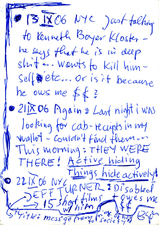 • 13 IX 06 NYC Just talking
to Kenneth Boyer Kloster –
he says that he is in deep
shit... wants to kill him-
self etc... or is it because
he owes me $ ?
• 21 IX 06 Again: Last night I was
looking for cab-receipts in my
wallet – couldn't find them...
This morning: THEY WERE
THERE! Active hiding
Things hide actively!
• 22 IX 06 NYC
JEFF TURNER: Disobbed
15 short films owes
me